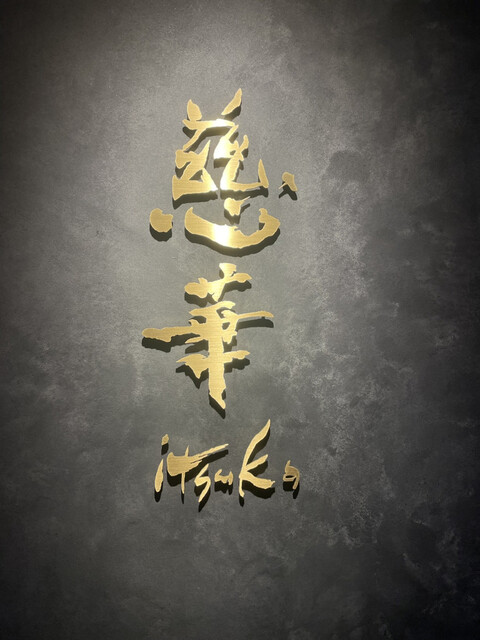 慈華
itsuka